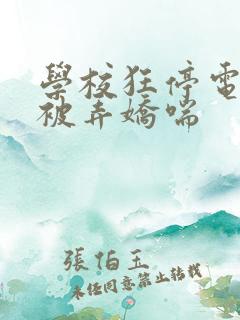 學校狂停電
被弄嬌喘
張伯玉
未經同意禁止轉載